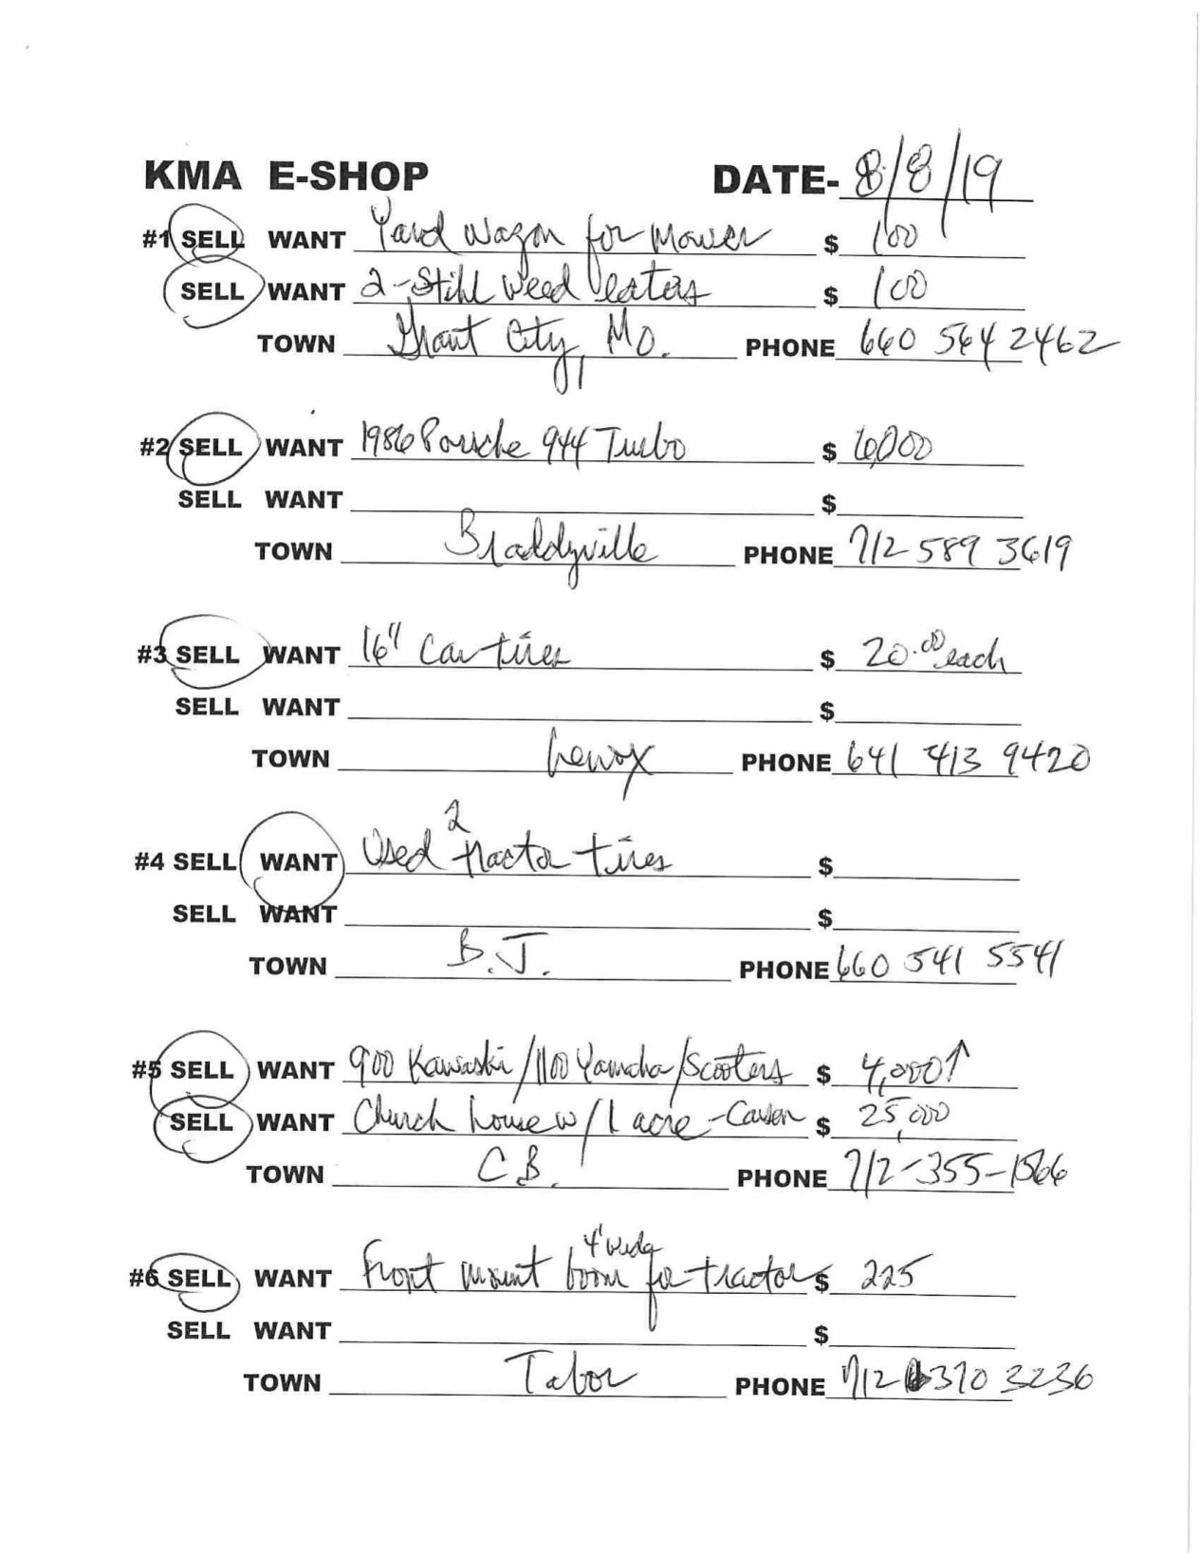 KMA E-SHOP DATE- 8/8/19
#1 SELL WANT Yard Wagon for Mower $ 100
SELL WANT 2-Stihl Weed eaters $ 100
TOWN Grant City, MO. PHONE 660 564 2462
#2 SELL WANT 1986 Porsche 944 Turbo $ 6,000
SELL WANT $
TOWN Braddyville PHONE 712 589 3619
#3 SELL WANT 16" Car tires $ 20.00 each
SELL WANT $
TOWN Lenox PHONE 641 413 9420
#4 SELL WANT Used 2 tractor tires $
SELL WANT $
TOWN B.J. PHONE 660 541 5541
#5 SELL WANT 900 Kawaski/1100 Yamaha/Scooters $ 4,000↑
SELL WANT Church house w/1 acre - $ 25,000
TOWN C.B. PHONE 712-355-1566
4'
#6 SELL WANT Front mount boom for tractor $ 225
SELL WANT $
TOWN Tabor PHONE 712 370 3236